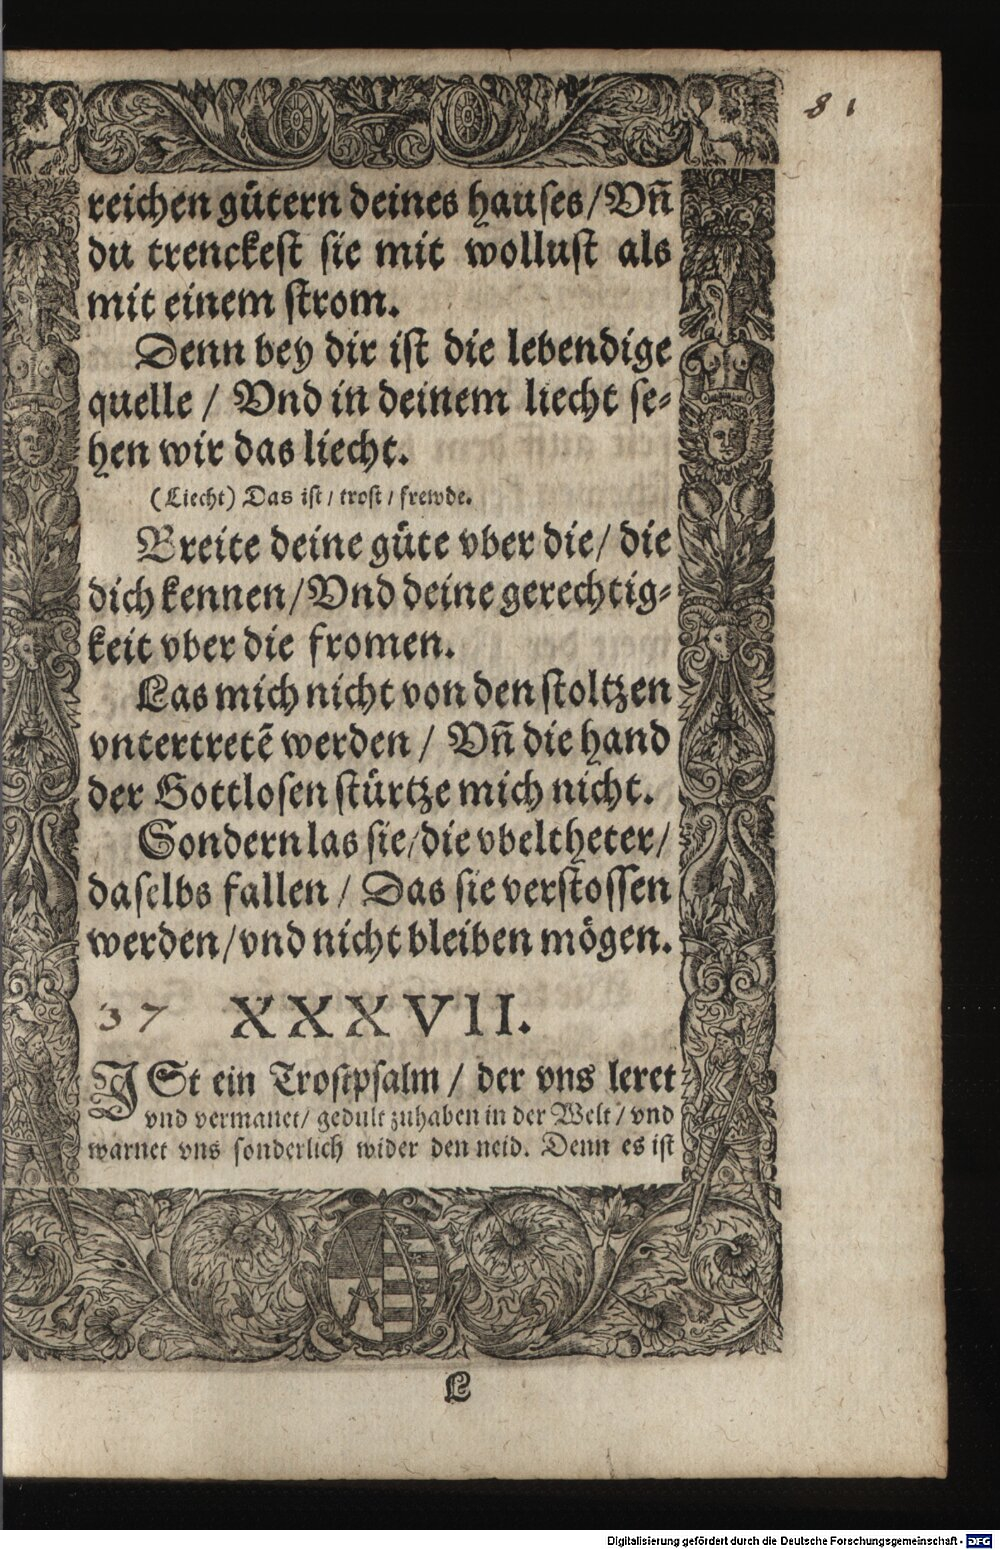 81
reichen gütern deines hauses/Vñ
du trenckest sie mit wollust als
mit einem strom.
Denn bey dir ist die lebendige
quelle / Vnd in deinem liecht se⸗
hen wir das liecht.
(Liecht) Das ist / trost / frewde.
Breite deine güte vber die/ die
dich kennen/Vnd deine gerechtig⸗
keit vber die fromen.
Las mich nicht von den stoltzen
vntertretẽ werden / Vñ die hand
der Gottlosen stürtze mich nicht.
Sondern las sie/die vbeltheter/
daselbs fallen / Das sie verstossen
werden/vnd nicht bleiben mögen.
37 XXXVII.
JSt ein Trostpsalm / der vns leret
vnd vermanet/ gedult zuhaben in der Welt / vnd
warnet vns sonderlich wider den neid. Denn es ist
L
Digitalisierung gefördert durch die Deutsche Forschungsgemeinschaft - DFG